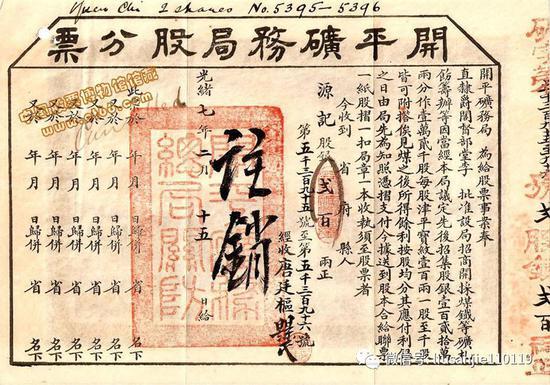 Yuen Chi 2 shares No. 5395-5396
開平礦務局股分票
開平礦務局 為給股票事案奉
直隸爵閣督部堂李 批准設局招商開採煤鐵等礦
飭籌辦等因當經本局議定先後招集股銀壹百貳拾萬
兩分作壹萬貳千股每股津平寶紋壹百兩一股至千股
皆可附搭俟見煤之後所得餘利按股均分其應付利
之日由局先為知照憑摺支付以據送到股本合給聯票
一紙股摺一扣局章一本收執須至股票者
今收到 省 府 縣人
源記 股 弍百 兩正
第五千三百九十五號至第五千三百九十六號
經收唐廷樞
註銷
光緒 七 年 二 月 十五 日給
此於 年 月 日歸併 省 名下
又於 年 月 日歸併 省 名下
又於 年 月 日歸併 省 名下
又於 年 月 日歸併 省 名下
又於 年 月 日歸併 省 名下
又於 年 月 日歸併 省 名下
Cancelled
微信号: lucaitjie110119